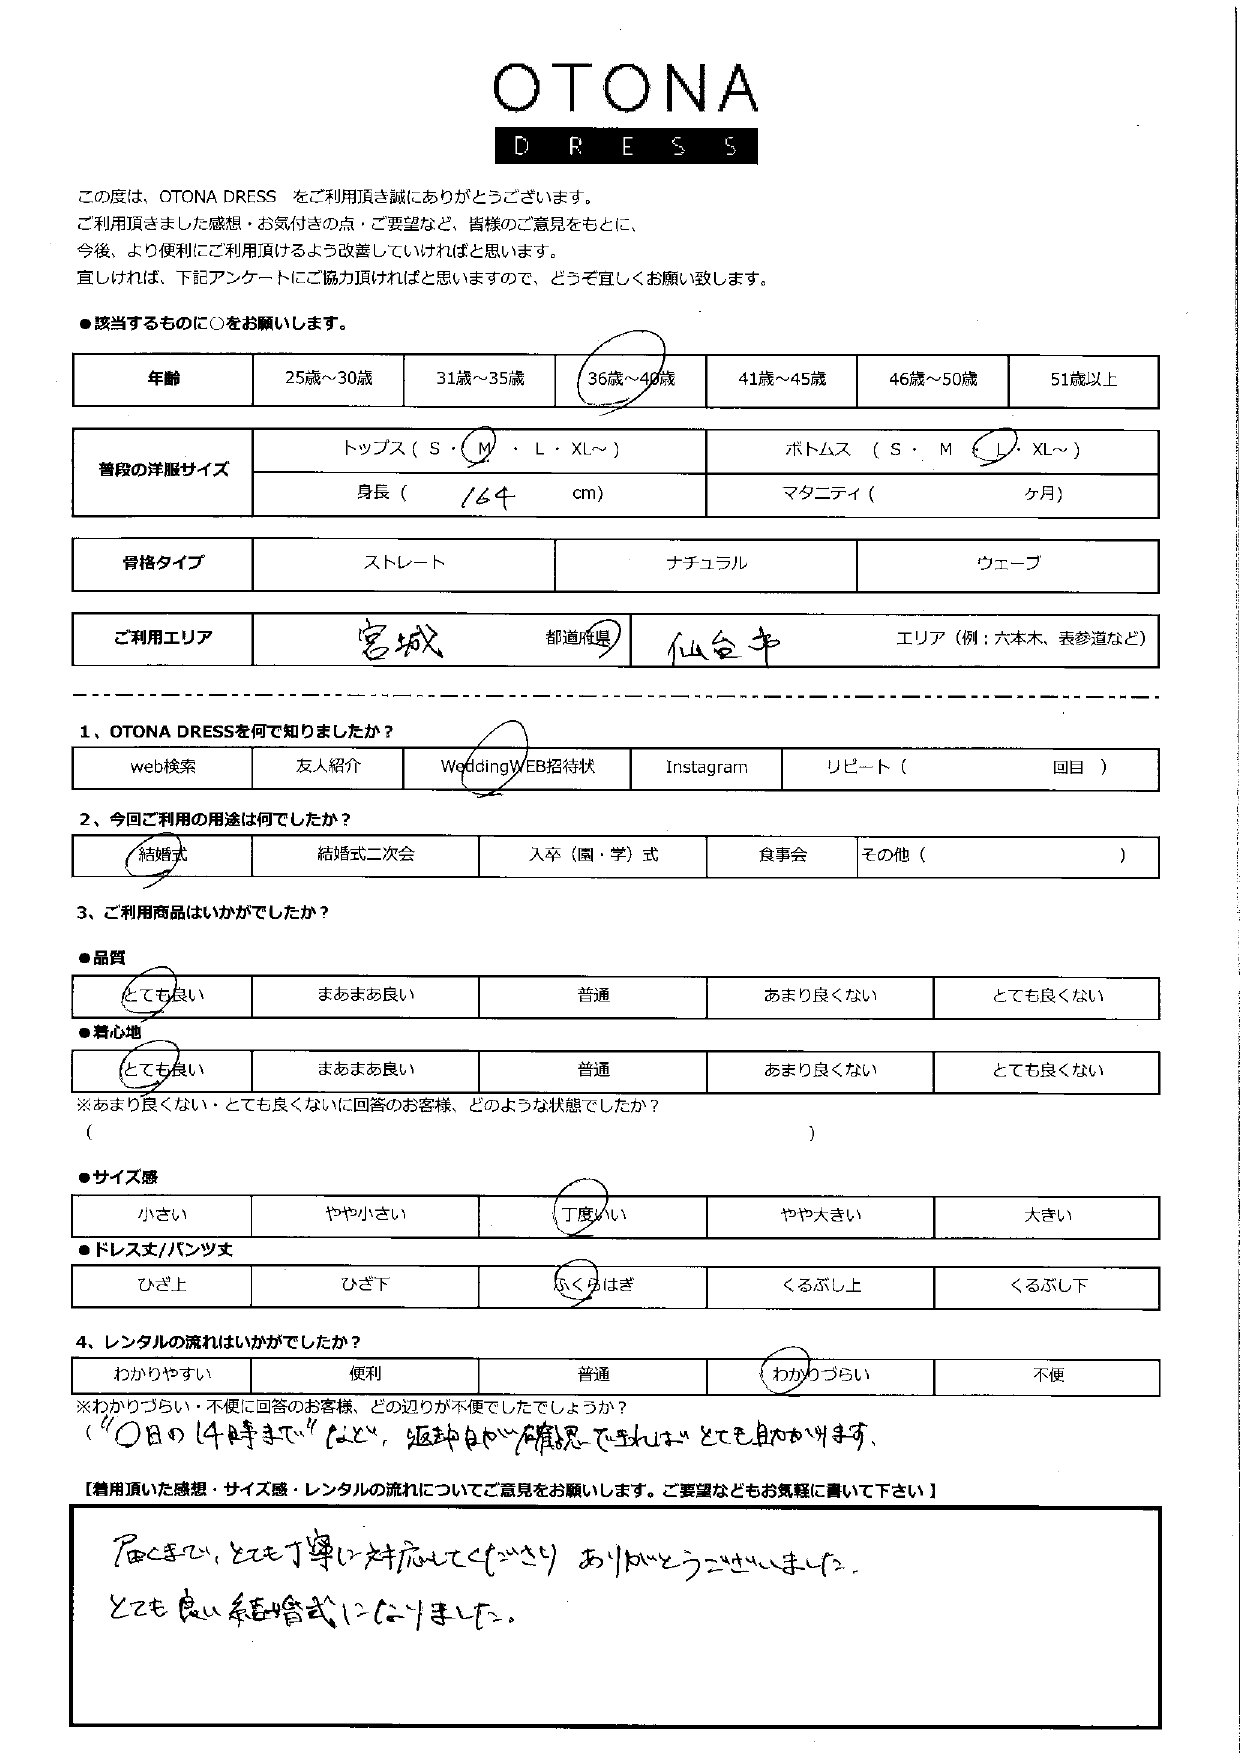 OTONA
DRESS
この度は、OTONA DRESS をご利用頂き誠にありがとうございます。
ご利用頂きました感想・お気付きの点・ご要望など、皆様のご意見をもとに、
今後、より便利にご利用頂けるよう改善していければと思います。
宜しければ、下記アンケートにご協力頂ければと思いますので、どうぞ宜しくお願い致します。
●該当するものに○をお願いします。
年齢 25歳～30歳 31歳～35歳 36歳～40歳 41歳～45歳 46歳～50歳 51歳以上
普段の洋服サイズ トップス ( S ・ M ・ L ・ XL～ ) ボトムス ( S ・ M ・ L ・ XL～ )
身長 ( 164 cm) マタニティ ( ケ月)
骨格タイプ ストレート ナチュラル ウェーブ
ご利用エリア 宮城 都道府県 仙台市 エリア（例：六本木、表参道など）
1、OTONA DRESSを何で知りましたか？
web検索 友人紹介 WeddingWEB招待状 Instagram リピート ( 回目 )
2、今回ご利用の用途は何でしたか？
結婚式 結婚式二次会 入卒（園・学）式 食事会 その他 ( )
3、ご利用商品はいかがでしたか？
●品質
とても良い まあまあ良い 普通 あまり良くない とても良くない
●着心地
とても良い まあまあ良い 普通 あまり良くない とても良くない
※あまり良くない・とても良くないに回答のお客様、どのような状態でしたか？
( )
●サイズ感
小さい やや小さい 丁度いい やや大きい 大きい
●ドレス丈/パンツ丈
ひざ上 ひざ下 ふくらはぎ くるぶし上 くるぶし下
4、レンタルの流れはいかがでしたか？
わかりやすい 便利 普通 わかりづらい 不便
※わかりづらい・不便に回答のお客様、どの辺りが不便でしたでしょうか？
( "○日の14時まで" など、返却日が確認できればとても助かります。
【着用頂いた感想・サイズ感・レンタルの流れについてご意見をお願いします。ご要望などもお気軽に書いて下さい】
届くまで、とても丁寧に対応してくださり ありがとうございました。
とても良い結婚式になりました。